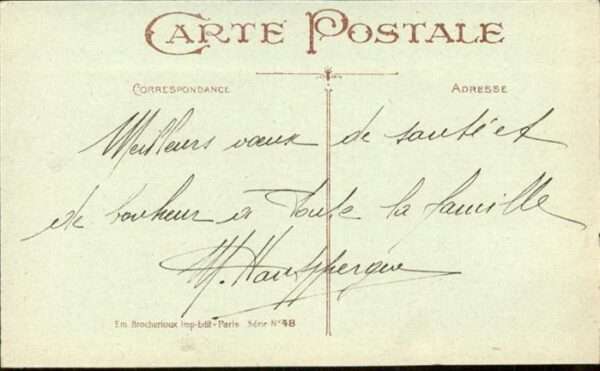 CARTE POSTALE
CORRESPONDANCE
ADRESSE
Meilleurs vœux de santé et
de bonheur à toute la famille
M.
Em. Brocherioux Imp-Edit - Paris Série N° 48